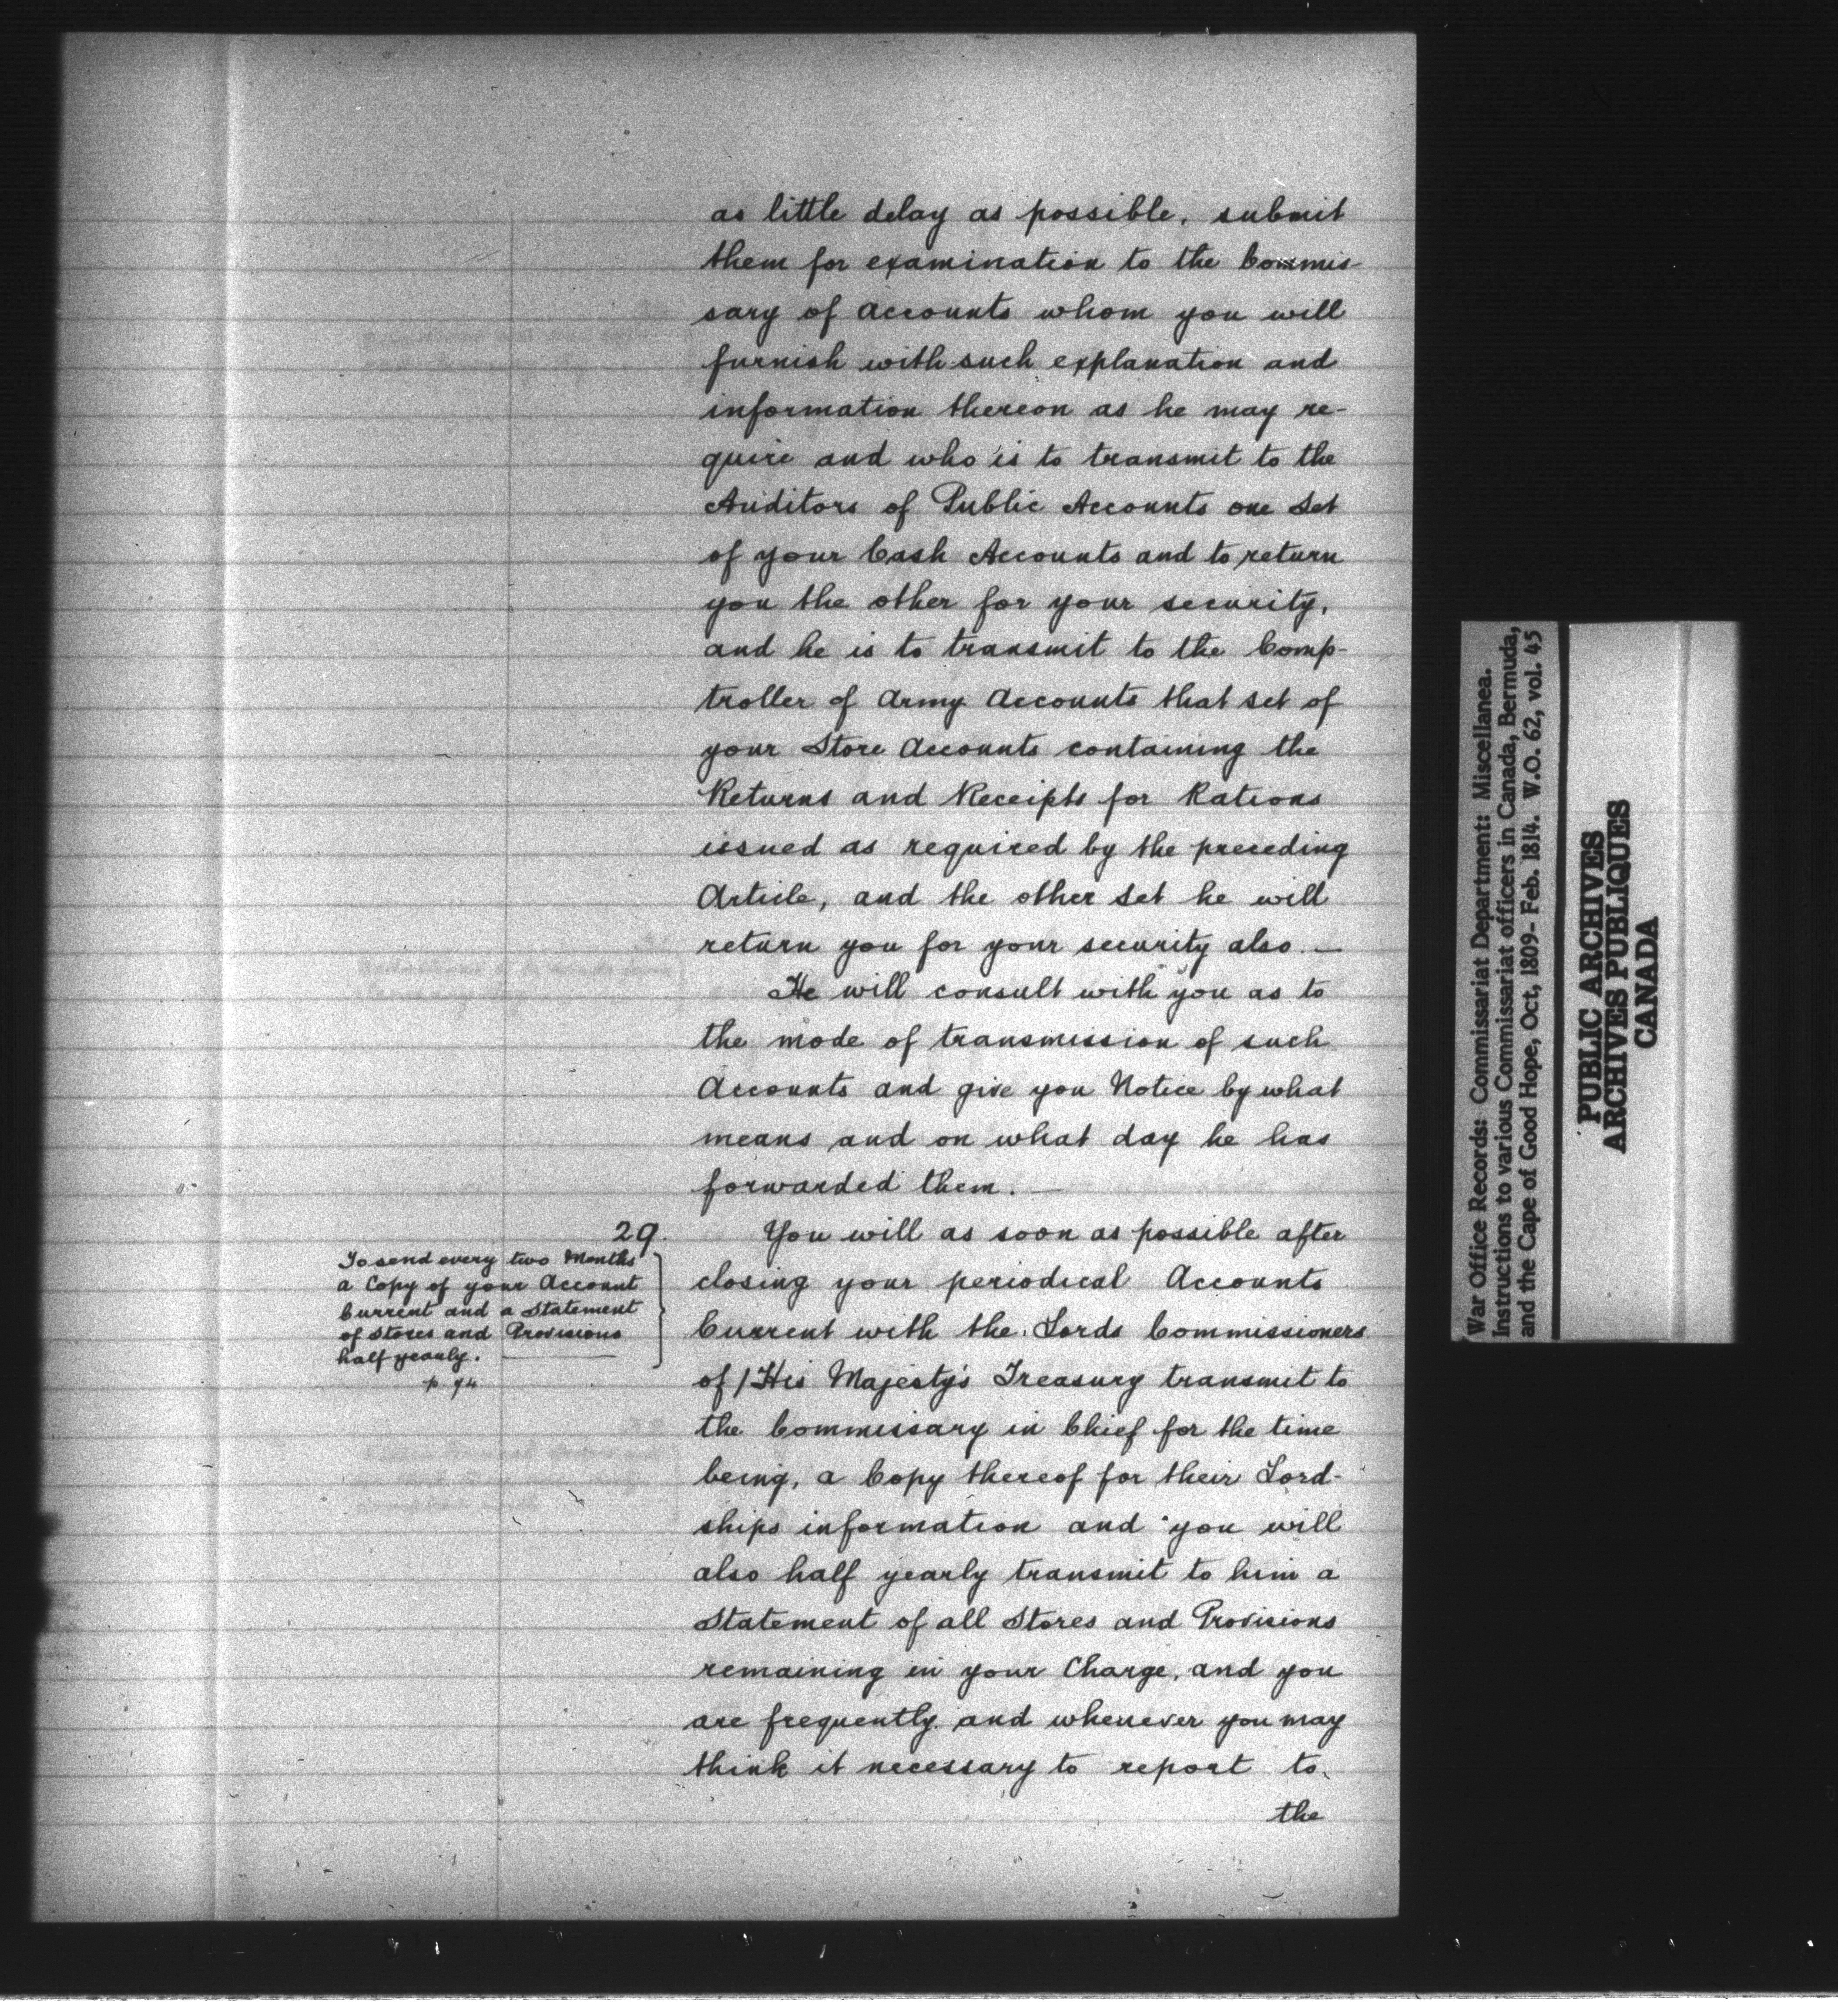 as little delay as possible, submit
them for examination to the Commis-
sary of Accounts whom you will
furnish with such explanation and
information thereon as he may re-
quire and who is to transmit to the
Auditors of Public Accounts one Set
of your Cash Accounts and to return
you the other for your security,
and he is to transmit to the Comp-
troller of Army Accounts that set of
your Store Accounts containing the
Returns and Receipts for Rations
issued as required by the preceding
Article, and the other Set he will
return you for your security also. —
He will consult with you as to
the mode of transmission of such
Accounts and give you Notice by what
means and on what day he has
forwarded them. —
29.
To send every two Months
a Copy of your Account
Current and a Statement
of Stores and Provisions
half yearly. —
p. 94
You will as soon as possible after
closing your periodical Accounts
Current with the Lords Commissioners
of His Majesty's Treasury transmit to
the Commissary in Chief for the time
being, a Copy thereof for their Lord-
ships information and you will
also half yearly transmit to him a
Statement of all Stores and Provisions
remaining in your Charge, and you
are frequently and whenever you may
think it necessary to report to
the
War Office Records: Commissariat Department: Miscellanea.
Instructions to various Commissariat officers in Canada, Bermuda,
and the Cape of Good Hope, Oct, 1809- Feb. 1814. W.O. 62, vol. 45
PUBLIC ARCHIVES
ARCHIVES PUBLIQUES
CANADA